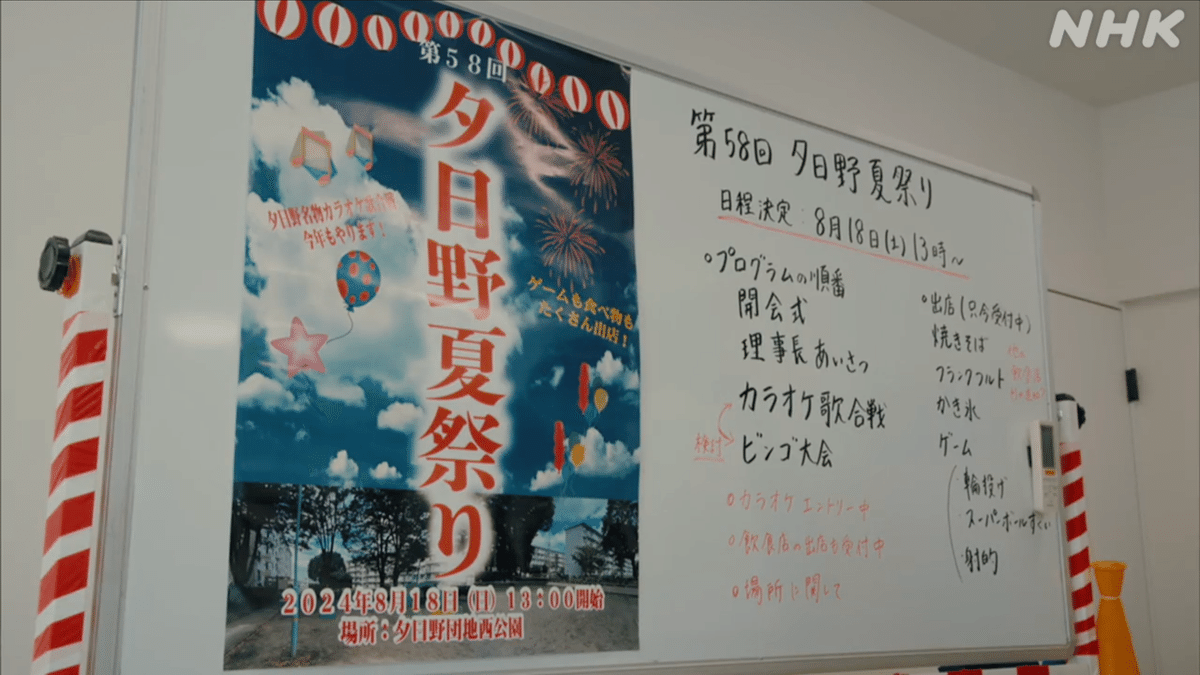 NHK
第58回
夕日野夏祭り
夕日野名物カラオケ歌合戦
今年もやります！
ゲームも食べ物も
たくさん出店！
2024年8月18日（日）13：00開始
場所：夕日野団地西公園
第58回 夕日野夏祭り
日程決定：8月18日(土)13時～
○プログラムの順番
開会式
理事長あいさつ
カラオケ歌合戦
ビンゴ大会
検討
○カラオケエントリー中
○飲食店の出店も受付中
○場所に関して
○出店(只今受付中)
焼きそば
フランクフルト
かき氷
ゲーム
・輪投げ
・スーパーボールすくい
・射的